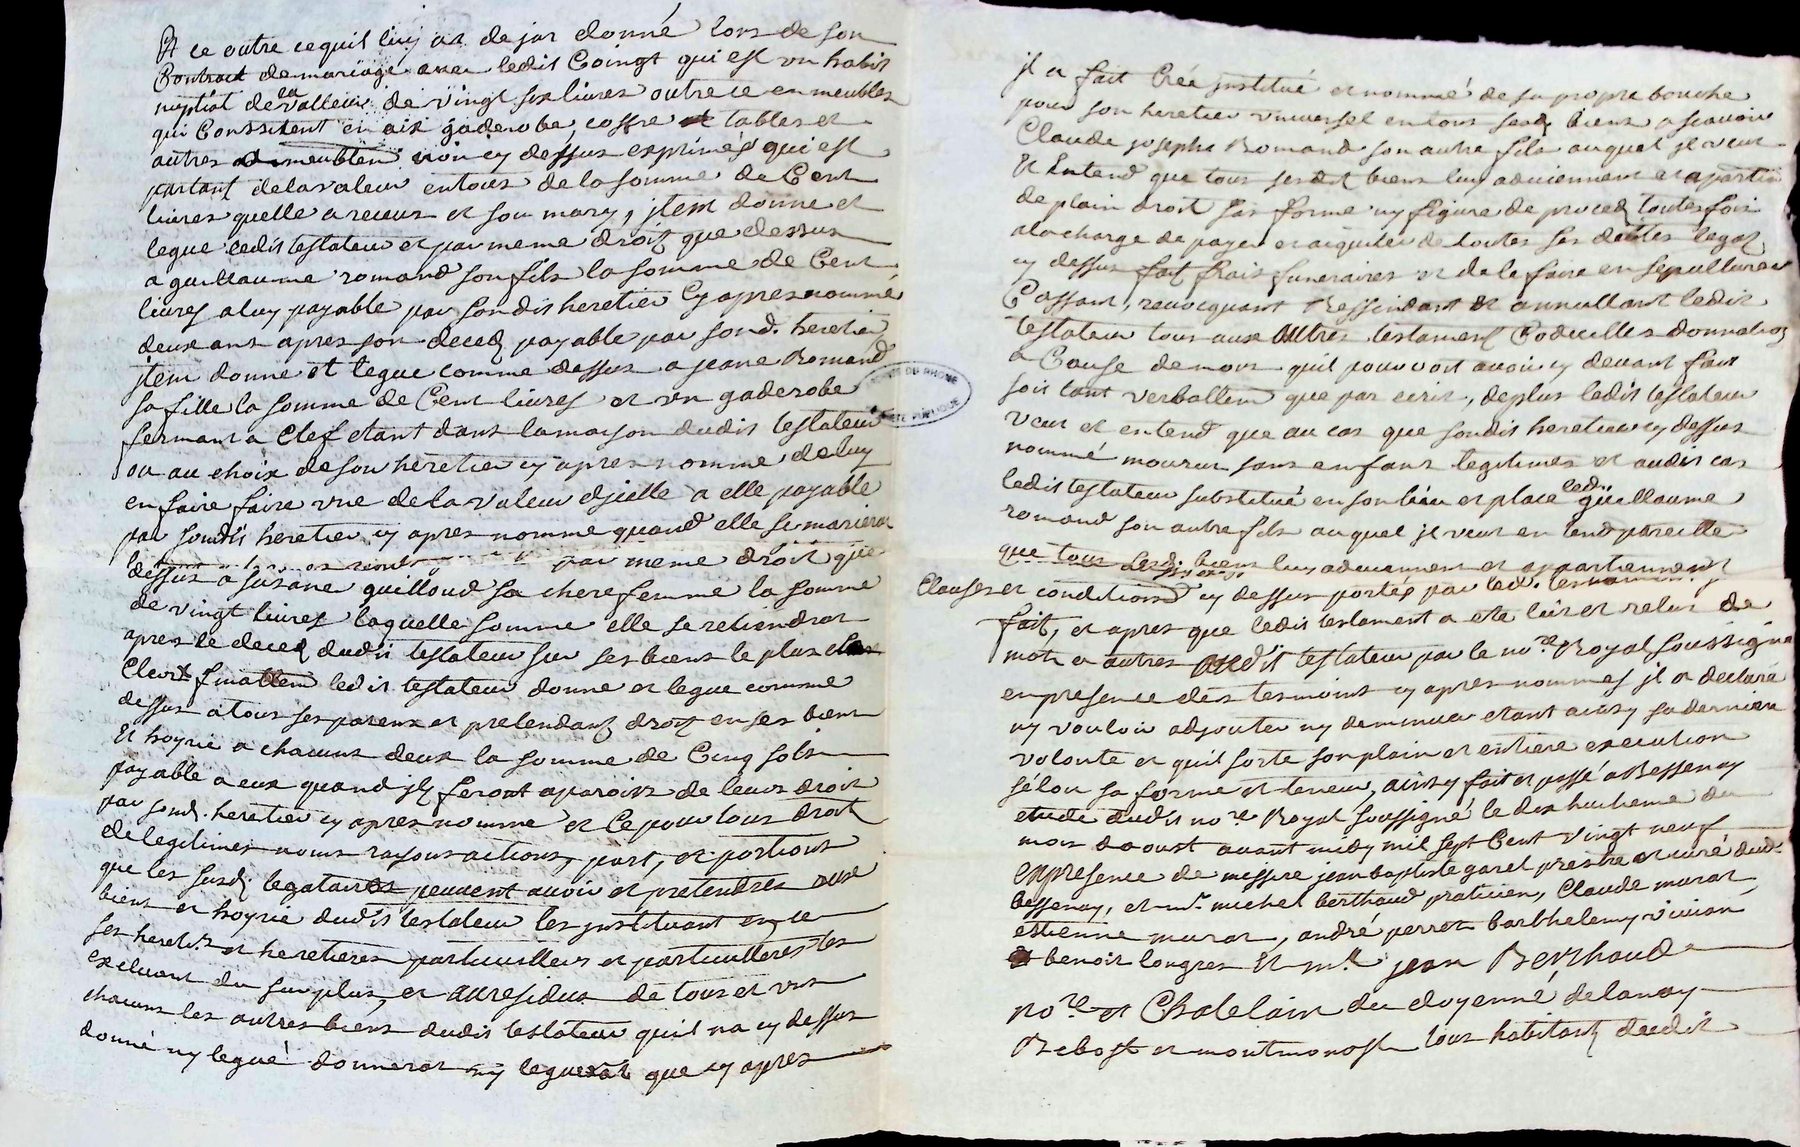 Et ce outre ce quil luy at de jat donné lors de son
Contract de mariage avec ledit Coingt qui est un habit
nuptiat de la valleur de vingt six livres outre ce en meubles
qui Conssistent en aix gaderobe, coffre et tables et
autres meubles non cy dessus exprimés qui est
partant de la valeur en tous de la somme de Cent
livres quelle a receus et son mary, jtem donne et
legue ledit testateur et par meme droit que dessus
a guillaume romand son fils la somme de Cent
livres a luy payable par sondit heretier Cy apres nommé
deux ans apres son deced payable par sond. heretier
jtem donne et legue comme dessus a jeane Romand
sa fille la somme de Cent livres et un gaderobe
fermant a Clef etant dans la maison dudit testateur
ou au choix de son heretier cy apres nomme de luy
en faire faire une de la valeur djcelle a elle payable
par sondit heretier cy apres nomme quand elle se marierat
par meme droit que
dessus a susane guilloud sa chere femme la somme
de vingt livres laquelle somme elle se retiendrat
apres le deced dudit testateur sur ses biens le plus
Cleort finallem ledit testateur donne et legue comme
dessus a tous ses parens et pretendans droit en ses biens
Et hoyrie a chacuns deux la somme de Cinq sols
payable a eux quand jls feront aparoirs de leurs droit
par sond. heretier cy apres nomme et Ce pour tous droit
de legitimes noms raisons actions, part, et portions
que les susd. legataires peuvent avoir et pretendres aux
biens et hoyrie dudit testateur les jnstituant en ce
ses heret.rs et heretieres particulliers et particullieres les
excluant du surplus, et au residus de tous et uns
chacuns les autres biens dudit testateur quil na cy dessus
donné ny legué donnerat ny leguerat que cy apres
jl a fait Créé jnstitué et nommé de sa propre bouche
pour son heretier universel en tous sesd. biens a scavoir
Claude josepht Romand son autre fils auquel jl veut
Et Entend que tous sesdt biens luy adviennent et apartien
de plain droit sas forme ny figure de proced toutes fois
a la charge de payer et aquiter de toutes ses debtes legat
cy dessus fait frais funeraires et de le faire en sepulturer
Cassant, revocquant Ressindant et annullant ledit
testateur tous aux autres testamens Codicilles donnations
a Cause de mort quil pouvoit avoir cy devant fait
soit tant verballem que par ecrit, de plus ledit testateur
veut et entend que au cas que sondit heretier cy dessus
nommé mourut sans enfans legitimes et audit cas
ledit testateur substitué en son lieu et place led. guillaume
romand son autre fils auquel jl veut en tend pareille
que tous sesd. biens luy adviennent et appartiennent
Clauses et conditions cy dessus portés par led. testament
fait, et apres que ledit testament a ete leu et releu de
mot a autres audit testateur par le no.re Royal soussigné
en presence des tesmoins cy apres nommes jl a declaré
ny vouloir adjouter ny deminuer etant ainsy sa derniere
volonte et quil sorte son plain et entiere execution
selon sa forme et teneur, ainsy fait et passé a Bessenay
etude dudit no.re Royal soussigné le dix huitieme du
mois daoust avant midy mil sept Cent vingt neuf
en presence de messire jean baptiste garel prestre et curé dud.
bessenay, et m.r michel berthaud praticien, Claude murat,
estienne murat, andré perret barthelemy vivian
benoit longres Et m.e jean Berthaud
no.re et Chatelain du doyenné delanay
Rebost et montmonost tous habitant dudit